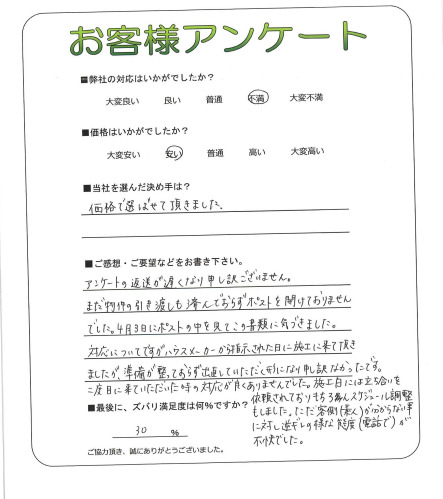 お客様アンケート
■弊社の対応はいかがでしたか?
大変良い 良い 普通 不満 大変不満
■価格はいかがでしたか?
大変安い 安い 普通 高い 大変高い
■当社を選んだ決め手は?
価格で選ばせて頂きました。
■ご感想・ご要望などをお書き下さい。
アンケートの返送が遅くなり申し訳ございません。
まだ物件の引き渡しも済んでおらずポストを開けておりません
でした。4月3日にポストの中を見てこの書類に気づきました。
対応についてですがハウスメーカーから指示された日に施工に来て頂き
ましたが、準備が整っておらず出直していただく形になり申し訳なかったです。
二度目に来ていただいた時の対応が良くありませんでした。施工日には立ち会いを
依頼されておりもちろんスケジュール調整
■最後に、ズバリ満足度は何%ですか?
もしました。ただ客側(素人)が分からない事
30 %
に対し逆ギレの様な態度(電話で)が
不快でした。
ご協力頂き、誠にありがとうございました。